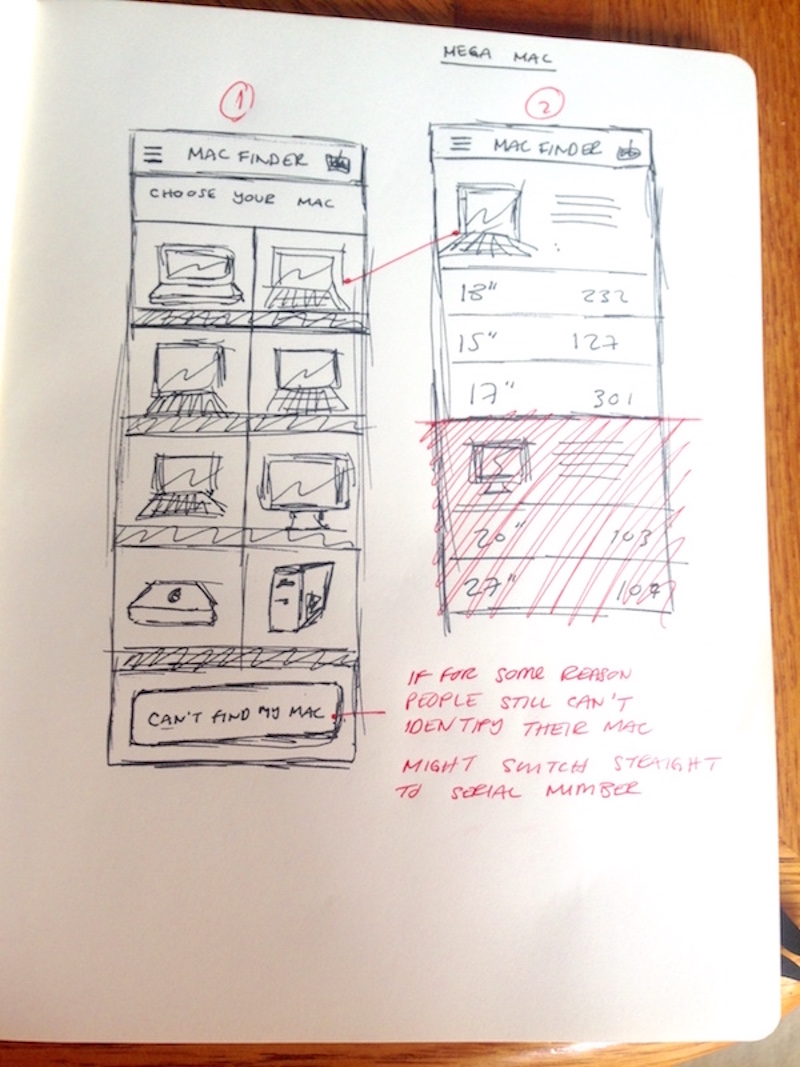 MEGA MAC
1
MAC FINDER
CHOOSE YOUR MAC
CAN'T FIND MY MAC
2
MAC FINDER
18" 232
15" 127
17" 301
20" 103
27" 107
IF FOR SOME REASON
PEOPLE STILL CAN'T
IDENTIFY THEIR MAC
MIGHT SWITCH STRAIGHT
TO SERIAL NUMBER